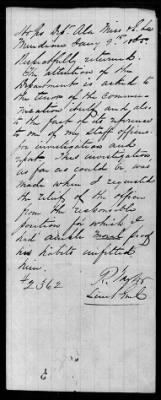 Hd Qrs Dept Ala Miss & E. La
Meridian
Respectfully returned.
The attention of the
Department is called to
the tenor of the commu-
nication itself and also
to the fact of its reference
to one of my staff officers
for investigation and
report. This investigation
as far as could be was
made when I requested
the relief of the officer
from the responsible
position for which I
had ample proof
his habits unfitted
him.
R. Taylor
Lieut Genl
#2362